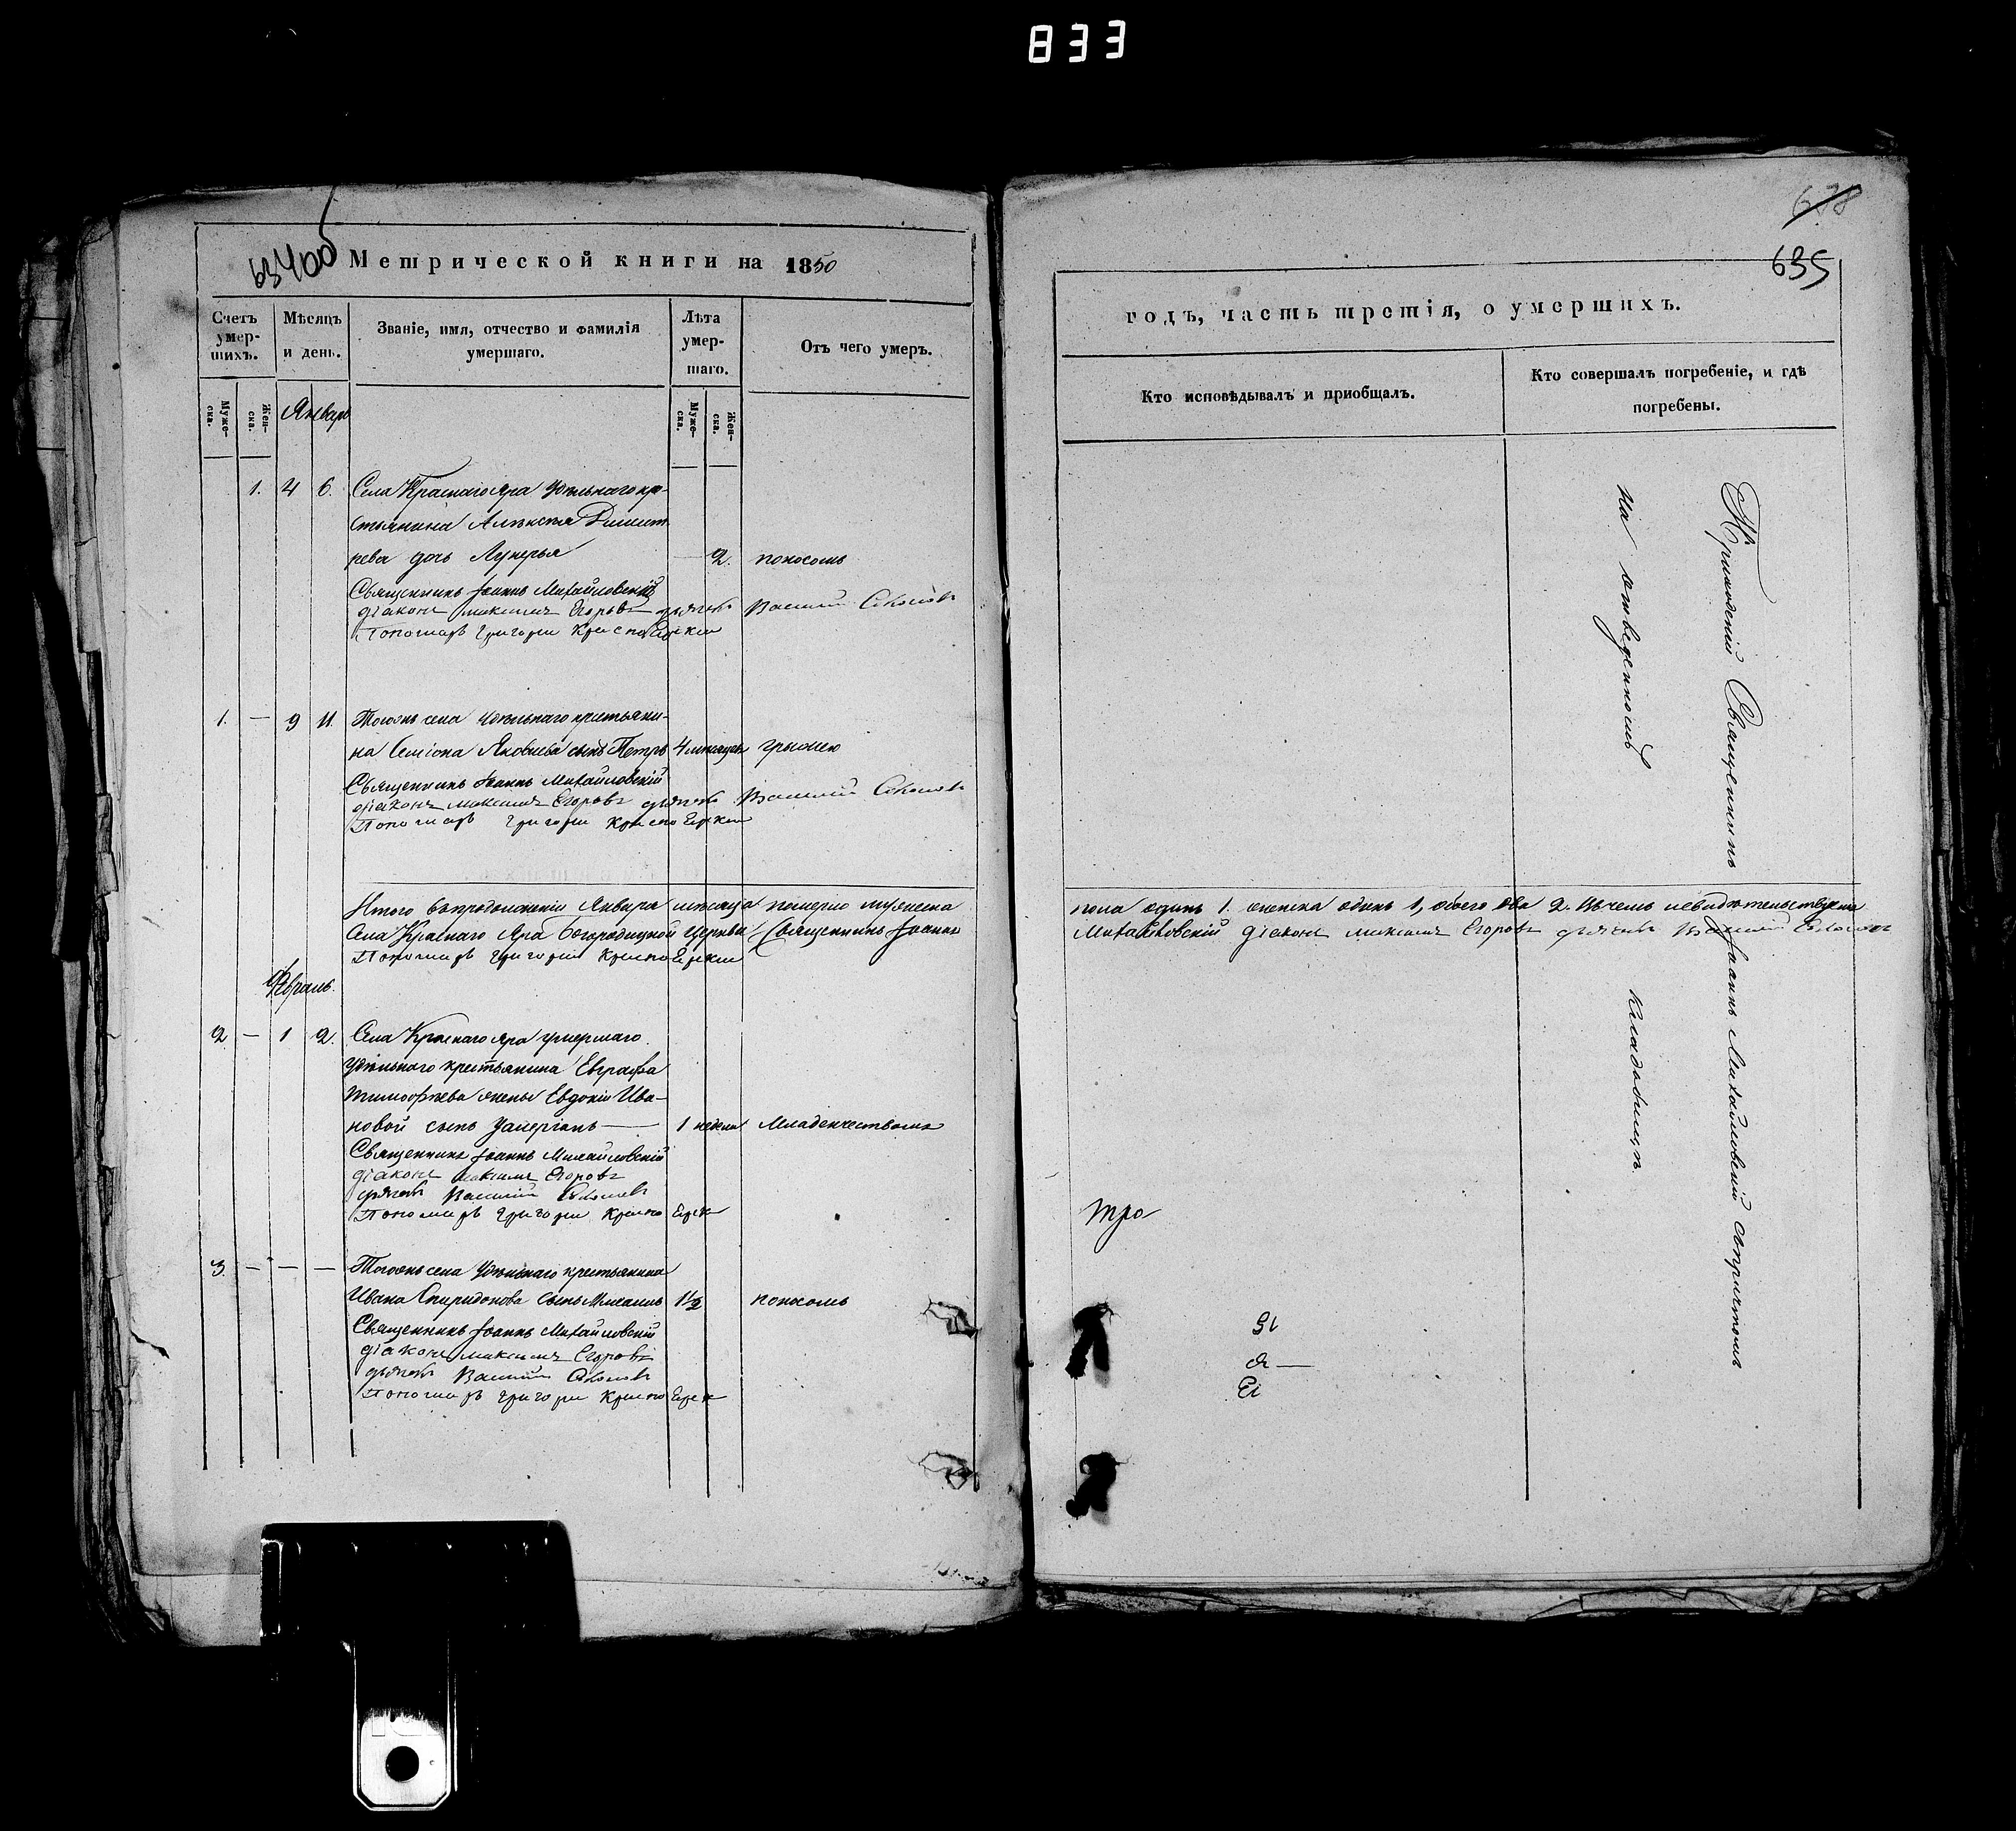 833
634об
Метрической книги на 1850
Счетъ умер-шихъ.
Мѣсяцъ и день.
Званіе, имя, отчество и фамилія умершаго.
Лѣта умер-шаго.
Отъ чего умеръ.
Муже-ска.
Жен-ска.
Январь
Муже-ска.
Жен-ска.
1. 4 6. Села Краснаго Яра Удѣльнаго кре-
стьянина Алексѣя Димит
рева дочь Лукерья 2. поносомъ
Священникъ Іоаннъ Михайловскій
діаконъ Максимъ Егоровъ дьячекъ Василій
Пономарь Григорій
1. — 9 11. Тогожъ села удѣльнаго крестьяни-
на Семіона Яковлева сынъ Петръ 4 мѣсяцевъ грыжею
Священникъ Іоаннъ Михайловскій
діаконъ Максимъ Егоровъ дьячекъ Василій
Пономарь Григорій
Итого въ продолженіи Января мѣсяца померло мужеска
Села Краснаго Яра Богородицкой церкви Священникъ Іоаннъ
Пономарь Григорій
Февраль.
2 — 1 2. Села Краснаго Яра умершаго
удѣльнаго крестьянина Евграфа
Тимофѣева жены Евдокіи Ива-
новой сынъ Валеріанъ — 1 недели Младенчествомъ
Священникъ Іоаннъ Михайловскій
діаконъ Максимъ Егоровъ
дьячекъ Василій
Пономарь Григорій
3. — — — Тогожъ села Удѣльнаго крестьянина
Ивана Спиридонова сынъ Михаилъ 1 1/2 поносомъ
Священникъ Іоаннъ Михайловскій
діаконъ Максимъ Егоровъ
дьячекъ Василій
Пономарь Григорій
638
635
годъ, часть третія, о умершихъ.
Кто исповѣдывалъ и приобщалъ.
Кто совершалъ погребеніе, и гдѣ погребены.
Приходскій Священникъ Іоаннъ Михайловскій съ причтомъ
на отведенномъ кладбищѣ
пола одинъ 1. женска одинъ 1, обоего два 2. Въ чемъ и свидѣтельствуемъ
Михайловскій діаконъ Максимъ Егоровъ дьячекъ Василій
тро